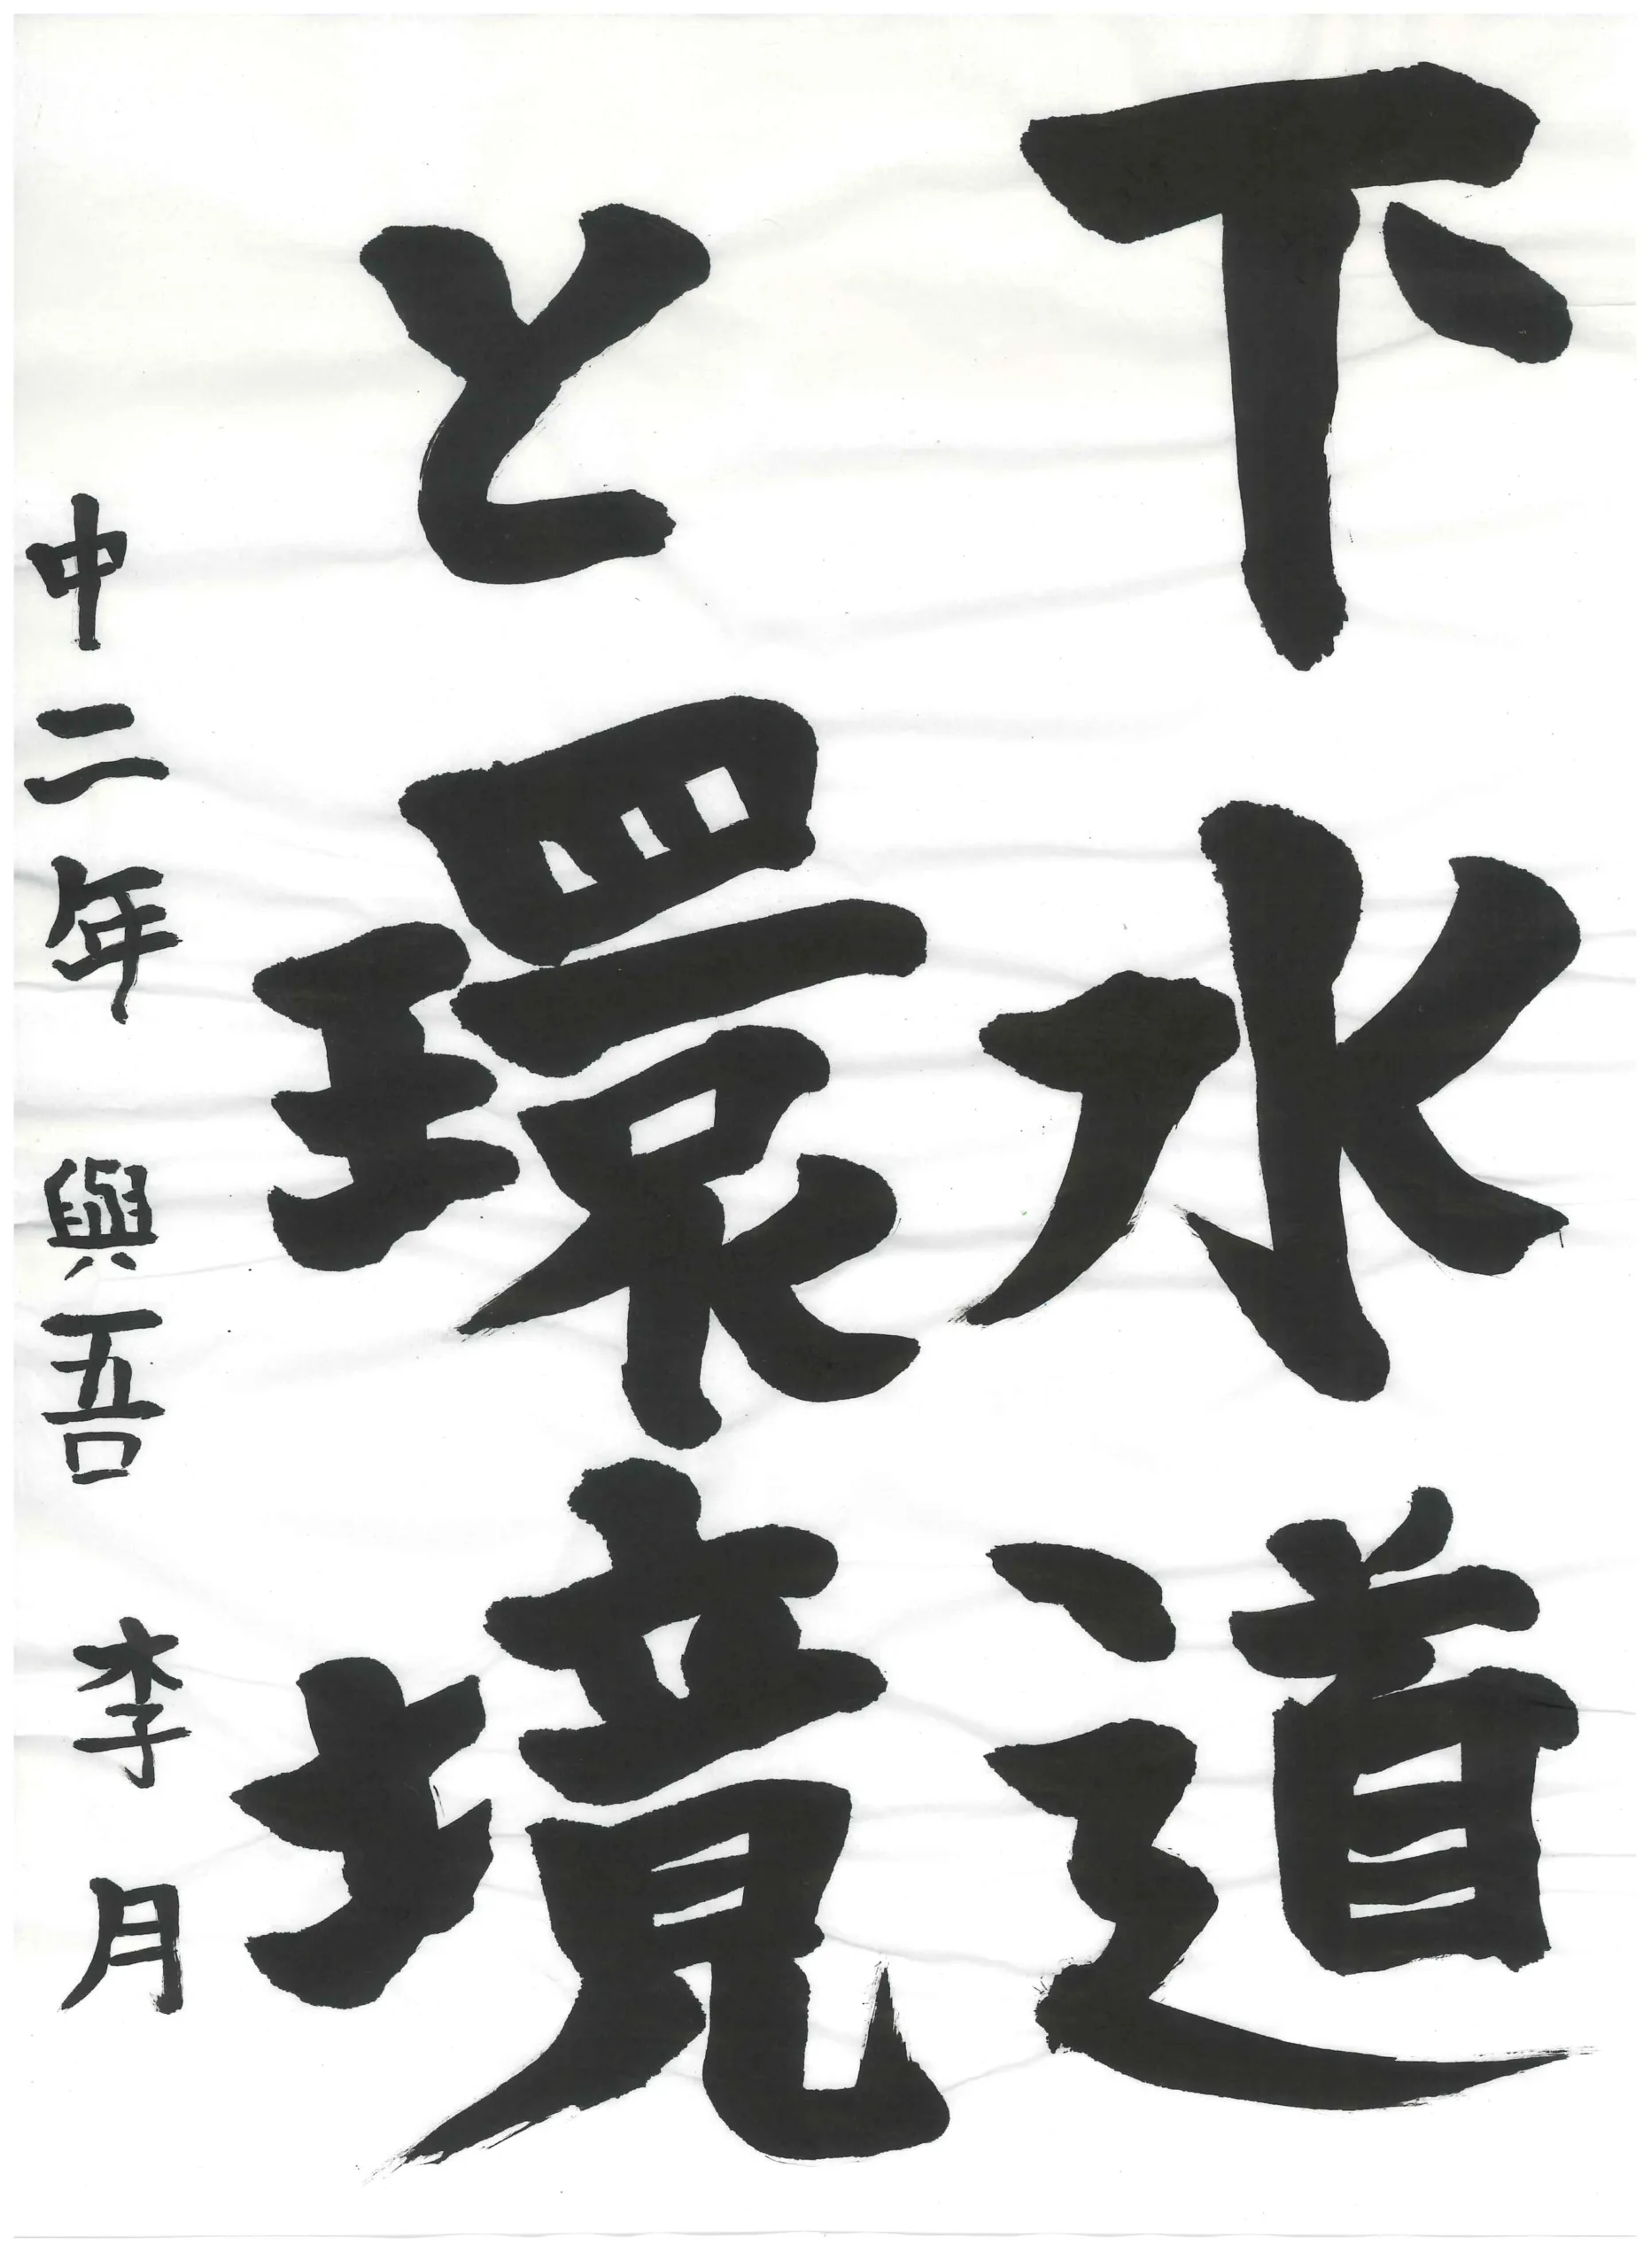 下水道
と環境
中二年 與吾 李月